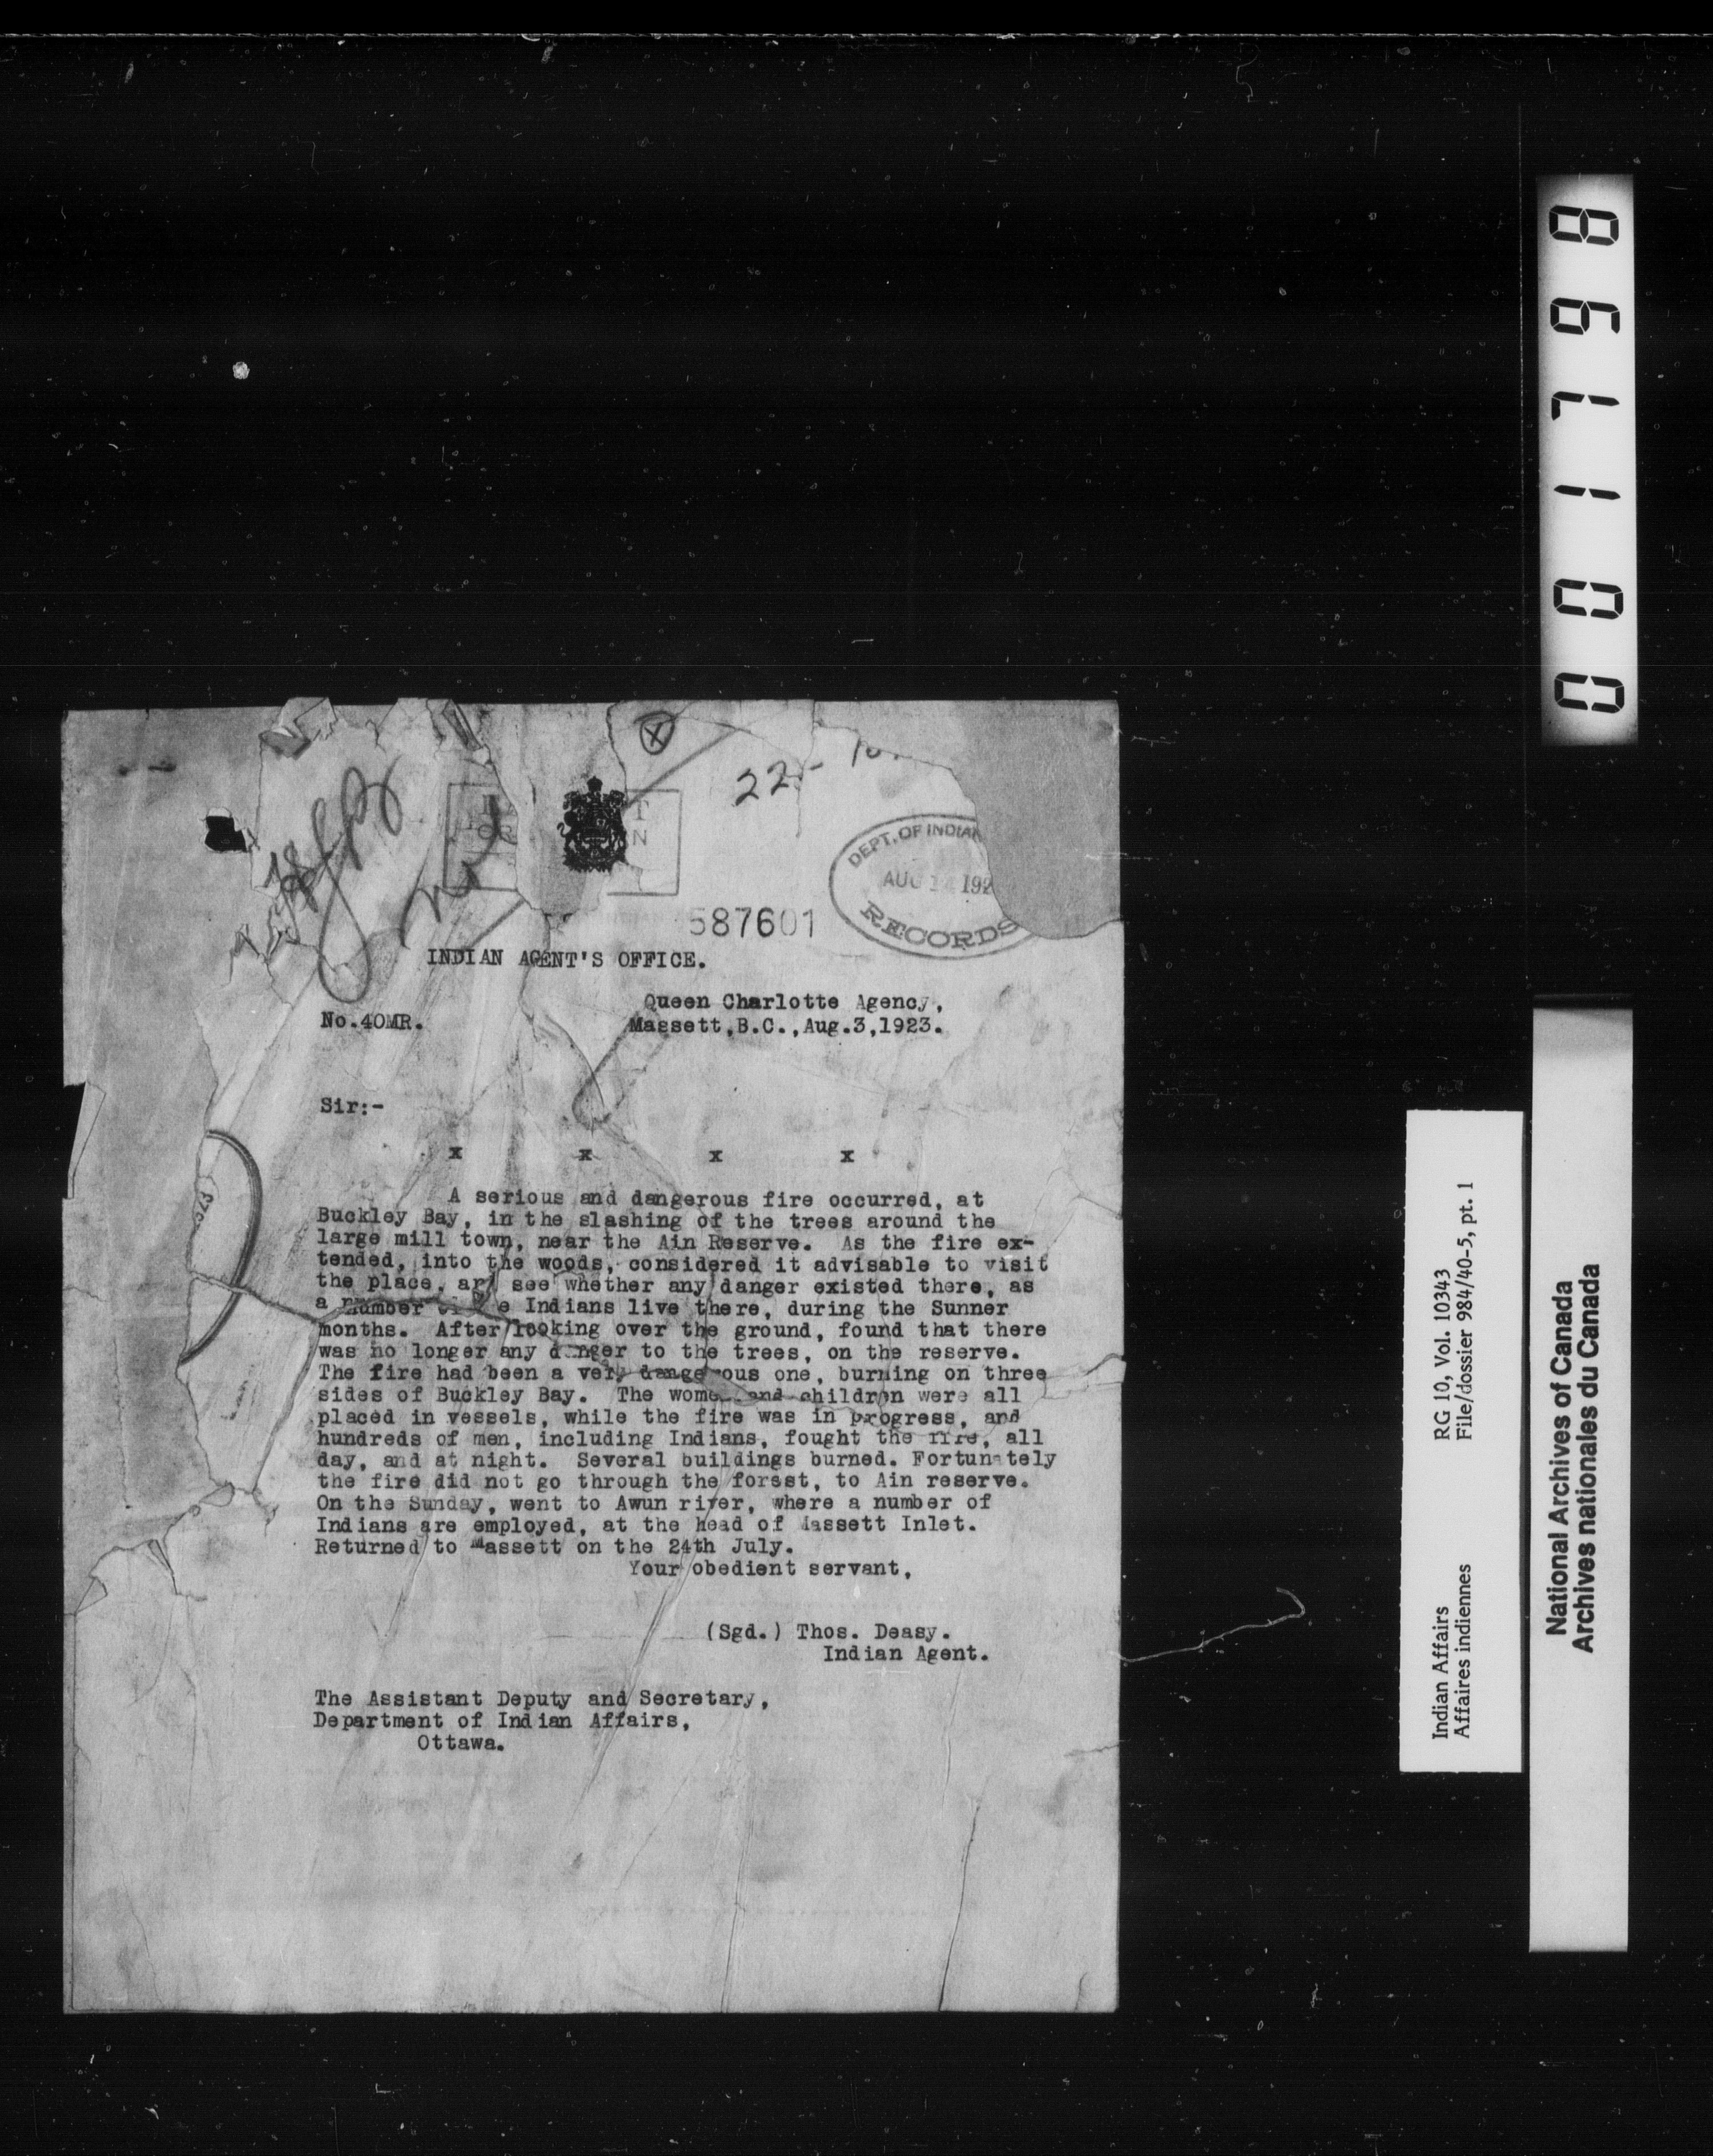 22-
DEPT. OF INDIAN
AUG 192
RECORDS
587601
INDIAN AGENT'S OFFICE.
Queen Charlotte Agency,
No.40MR.
Massett,B.C.,Aug.3,1923.
Sir:-
x x x x
A serious and dangerous fire occurred, at
Buckley Bay, in the slashing of the trees around the
large mill town, near the Ain Reserve. As the fire ex-
tended, into the woods, considered it advisable to visit
the place, and see whether any danger existed there, as
a number of the Indians live there, during the Sunner
months. After looking over the ground, found that there
was no longer any danger to the trees, on the reserve.
The fire had been a very dangerous one, burning on three
sides of Buckley Bay. The women and children were all
placed in vessels, while the fire was in progress, and
hundreds of men, including Indians, fought the fire, all
day, and at night. Several buildings burned. Fortunately
the fire did not go through the forest, to Ain reserve.
On the Sunday, went to Awun river, where a number of
Indians are employed, at the head of Massett Inlet.
Returned to Massett on the 24th July.
Your obedient servant,
(Sgd.) Thos. Deasy.
Indian Agent.
The Assistant Deputy and Secretary,
Department of Indian Affairs,
Ottawa.
001798
Indian Affairs RG 10, Vol. 10343
Affaires indiennes File/dossier 984/40-5, pt. 1
National Archives of Canada
Archives nationales du Canada